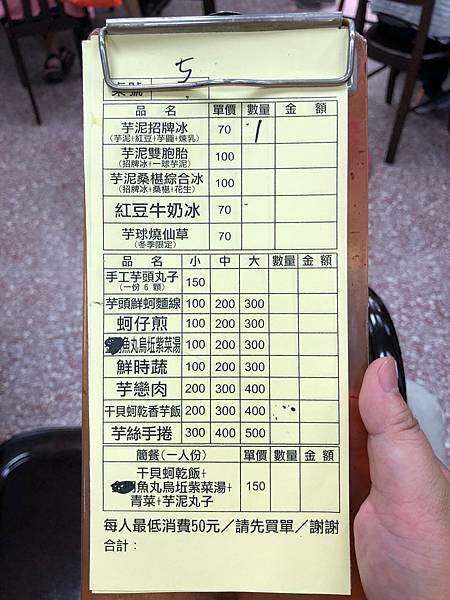 桌號 5
品 名 單價 數量 金 額
芋泥招牌冰 70 1
(芋泥+紅豆+芋圓+煉乳)
芋泥雙胞胎 100
(招牌冰+一球芋泥)
芋泥桑椹綜合冰 100
(招牌冰+桑椹+花生)
紅豆牛奶冰 70
芋球燒仙草 70
(冬季限定)
品 名 小 中 大 數量 金 額
手工芋頭丸子 150
(一份 6 顆)
芋頭鮮蚵麵線 100 200 300
蚵仔煎 100 200 300
魚丸烏坵紫菜湯 100 200 300
鮮時蔬 100 200 300
芋戀肉 200 300 400
干貝蚵乾香芋飯 200 300 400
芋絲手捲 300 400 500
簡餐(一人份) 單價 數量 金 額
干貝蚵乾飯+
魚丸烏坵紫菜湯+ 150
青菜+芋泥丸子
每人最低消費50元／請先買單／謝謝
合計：